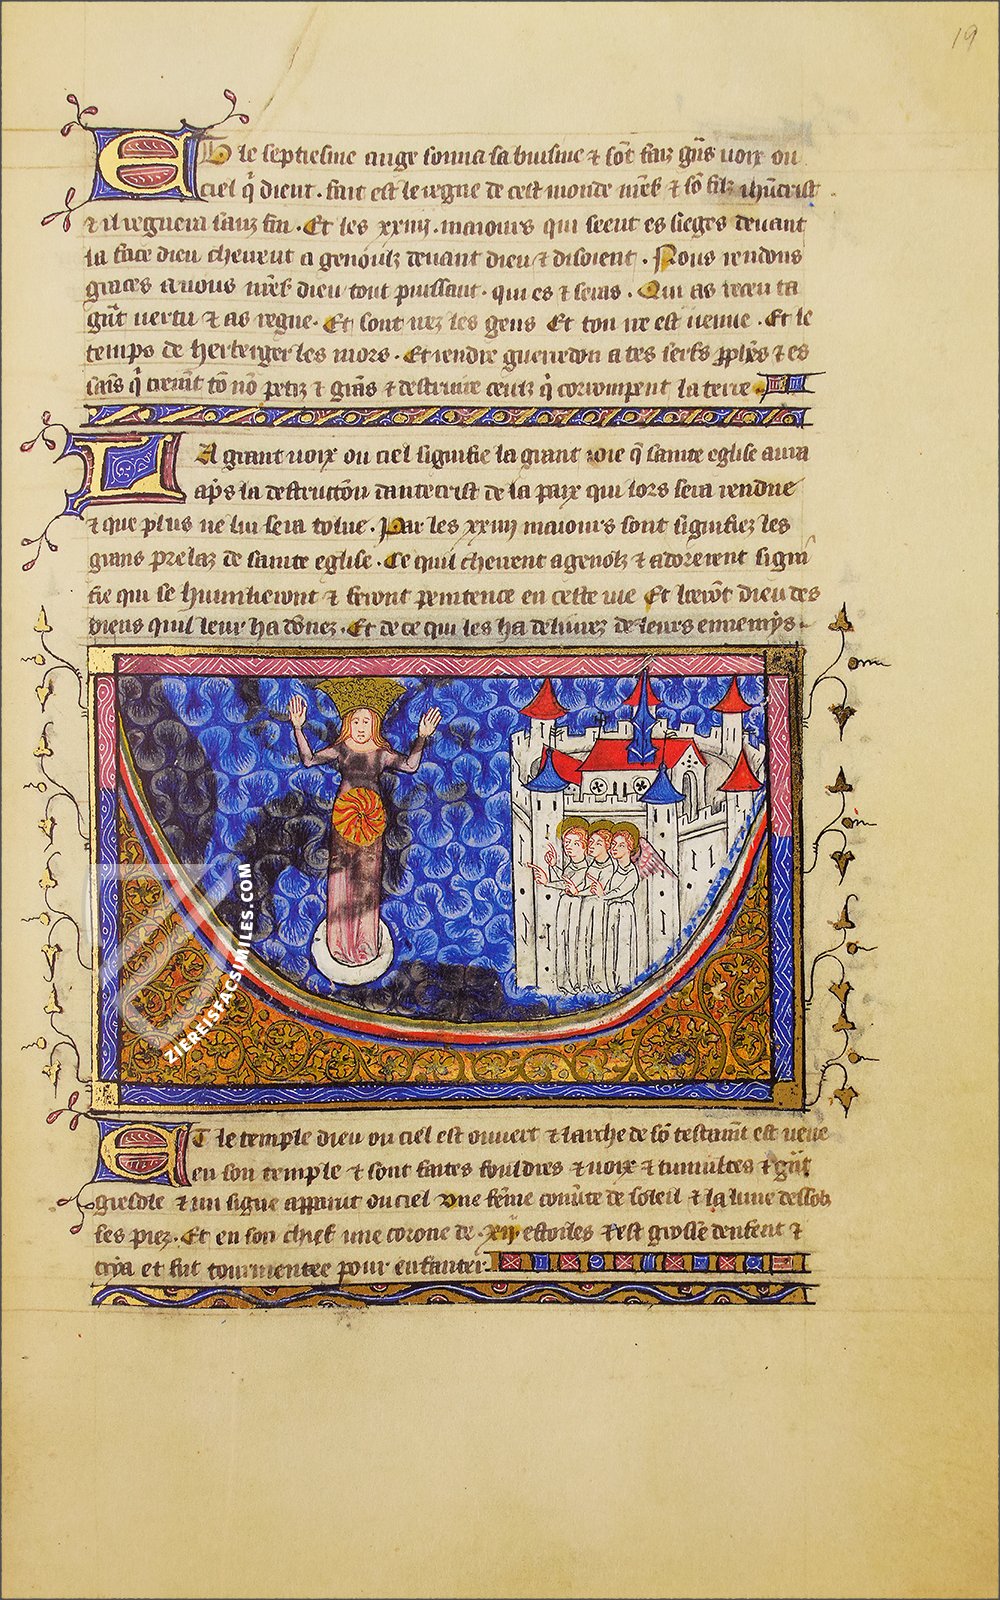 19
Et le septiesme ange sonna sa buisine ⁊ sōt faiz gñs uoix ou
ciel q̄ dient . fait est le regne de cest monde nr̄es ⁊ sō filz ihūcrist .
⁊ il regnera sanz fin . Et les xxiiij . maiours qui seent es sieges deuant
la face dieu cheurent a genoulz deuant dieu ⁊ disoient . Nous rendons
graces a uous nr̄es dieu tout puissant . qui es ⁊ seras . Qui as receu ta
gñt uertu ⁊ as regne . Et sont irez les gens Et ton ire est uenue . Et le
temps de herberger les mors . Et rendre guerredon a tes serfs ⁊ es
sais q̄ criemt tō nō petiz ⁊ grās ⁊ destruire ceulz q̄ corrompent la terre
LA grant uoix ou ciel signifie la grant ioie q̄ sainte eglise aura
ap̄s la destructōn dantecrist de la paix qui lors sera rendue
⁊ que plus ne lui sera tolue . Par les xxiiij maiours sont signifiez les
grans prelaz de sainte eglise . Ce quil cheurent a genolz ⁊ adorerent signi
fie qui se humilieront ⁊ feront penitence en ceste uie Et loerōt dieu des
biens quil leur ha dōnez . Et de ce qui les ha deliurez de leurs ennemys .
ZIEREISFACSIMILES.COM
ET le temple dieu ou ciel est ouuert ⁊ larche de sō testamt est ueue
en son temple ⁊ sont faites fouldres ⁊ uoix ⁊ tumultes ⁊ gñt
gresole ⁊ un signe apparut ou ciel Vne fēme couūte de soleil ⁊ la lune dessobz
ses piez . Et en son chief une corone de . xij . estoiles ⁊ est grosse denfent ⁊
cria et fut tourmentee pour enfanter .